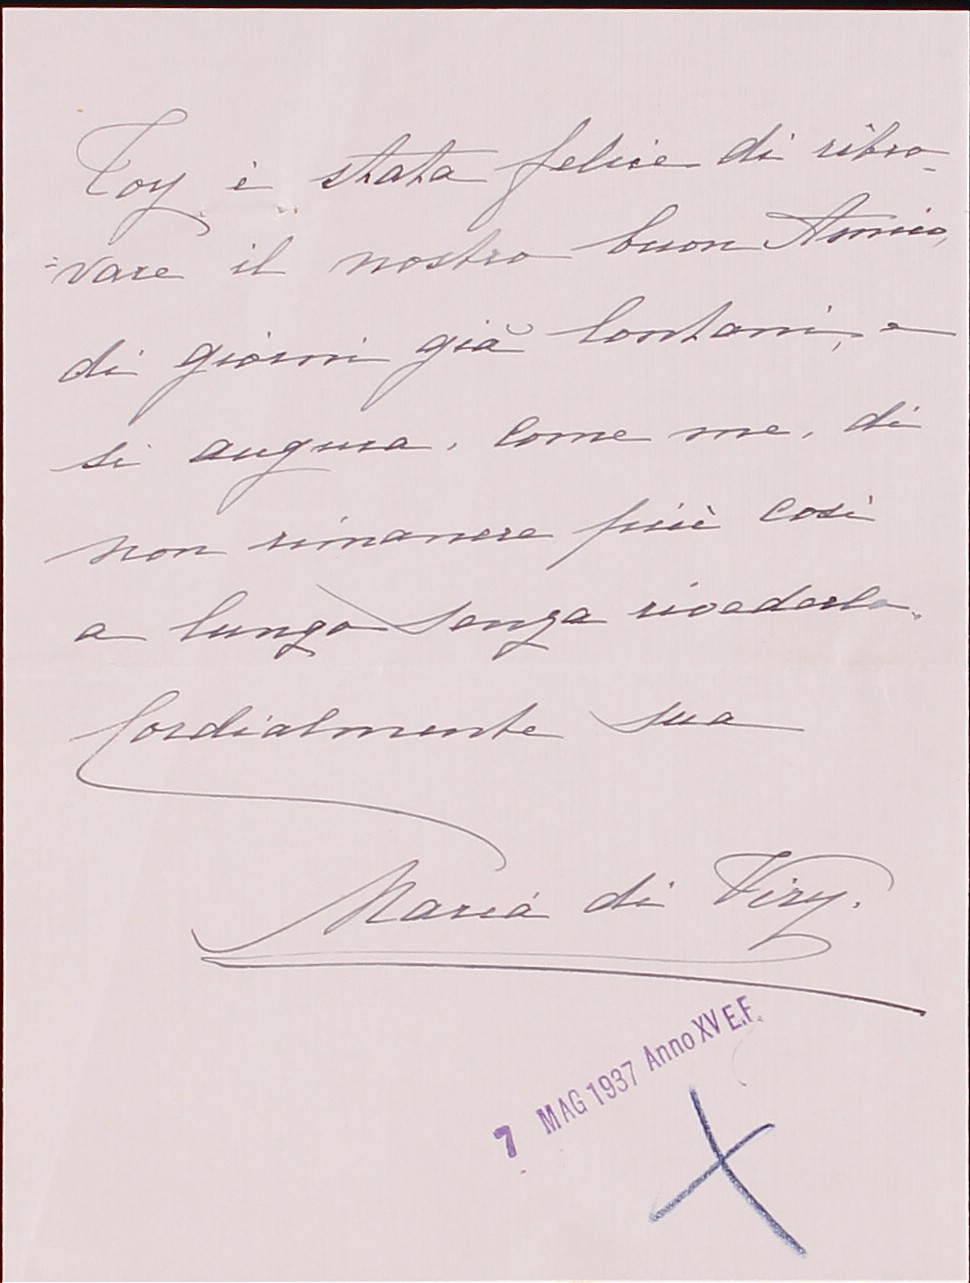 Toy è stata felice di ritro-
-vare il nostro buon Amico,
di giorni già lontani, e
si augura, come me, di
non rimanere più così
a lungo senza rivederla.
Cordialmente sua
Maria di Viry.
7 MAG 1937 Anno XV E.F.